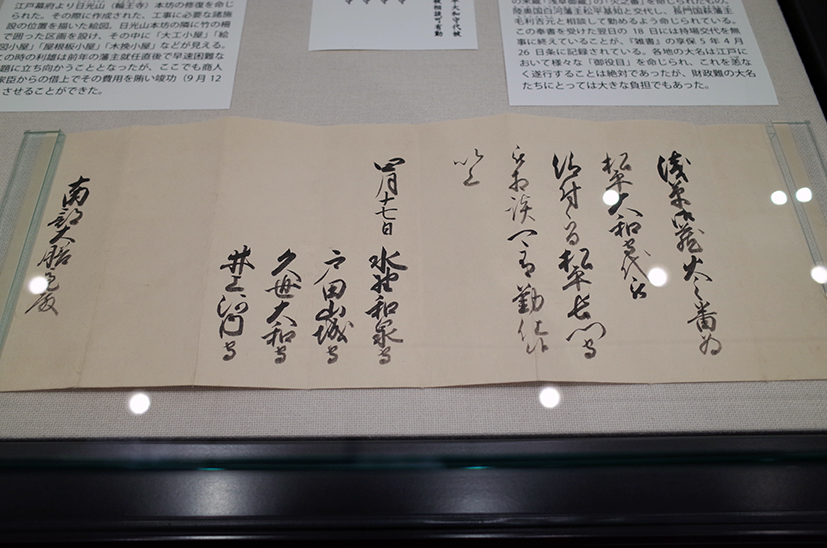 江戸幕府より日光山（輪王寺）本坊の修復を命じ
られた。その際に作成された、工事に必要な諸施
設の位置を描いた絵図。日光山本坊の隣に竹の柵
で囲った区画を設け、その中に「大工小屋」「絵
図小屋」「屋根板小屋」「木挽小屋」などが見える。
の時の利雄は前年の藩主就任直後で早速困難な
題に立ち向かうこととなったが、ここでも商人
家臣からの借上でその費用を賄い竣功（9月12
させることができた。
平大和守代被
被相談可有勤
の米蔵「浅草御蔵」の「火之番」を命じられたもの。
陸奥国白河藩主松平基知と交代し、長門国萩藩主
毛利吉元と相談して勤めるよう命じられている。
この奉書を受けた翌日の 18 日には持場交代を無
事に終えていることが、『雑書』の享保 5 年 4 月
26 日条に記録されている。各地の大名は江戸に
おいて様々な「御役目」を命じられ、これを恙な
く遂行することは絶対であったが、財政難の大名
たちにとっては大きな負担でもあった。
浅草御蔵火之番為
松平大和守代被
仰付候間松平長門守
被相談可有勤仕候
以上
四月十七日 水野和泉守
戸田山城守
久世大和守
井上河内守
南部大膳大夫殿